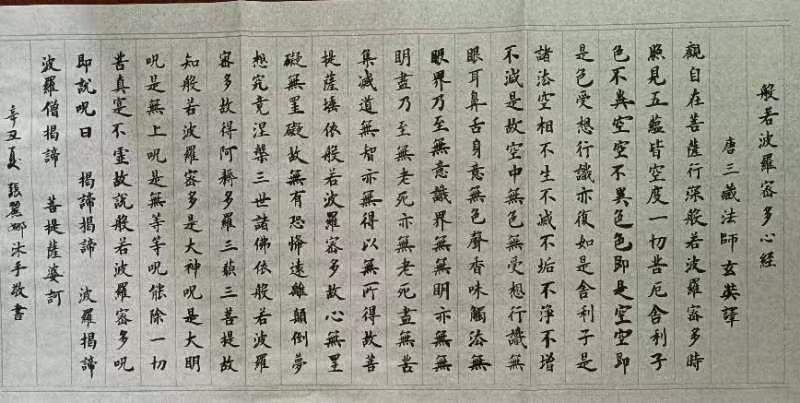 般若波羅蜜多心經
唐三藏法師玄奘譯
觀自在菩薩行深般若波羅蜜多時
照見五蘊皆空度一切苦厄舍利子
色不異空空不異色色即是空空即
是色受想行識亦復如是舍利子是
諸法空相不生不滅不垢不淨不增
不減是故空中無色無受想行識無
眼耳鼻舌身意無色聲香味觸法無
眼界乃至無意識界無無明亦無無
明盡乃至無老死亦無老死盡無苦
集滅道無智亦無得以無所得故菩
提薩埵依般若波羅蜜多故心無罣
礙無罣礙故無有恐怖遠離顛倒夢
想究竟涅槃三世諸佛依般若波羅
蜜多故得阿耨多羅三藐三菩提故
知般若波羅蜜多是大神呪是大明
呪是無上呪是無等等呪能除一切
苦真寔不虛故說般若波羅蜜多呪
即說呪曰 揭諦揭諦 波羅揭諦
波羅僧揭諦 菩提薩婆訶
辛丑夏 張麗娜沐手敬書